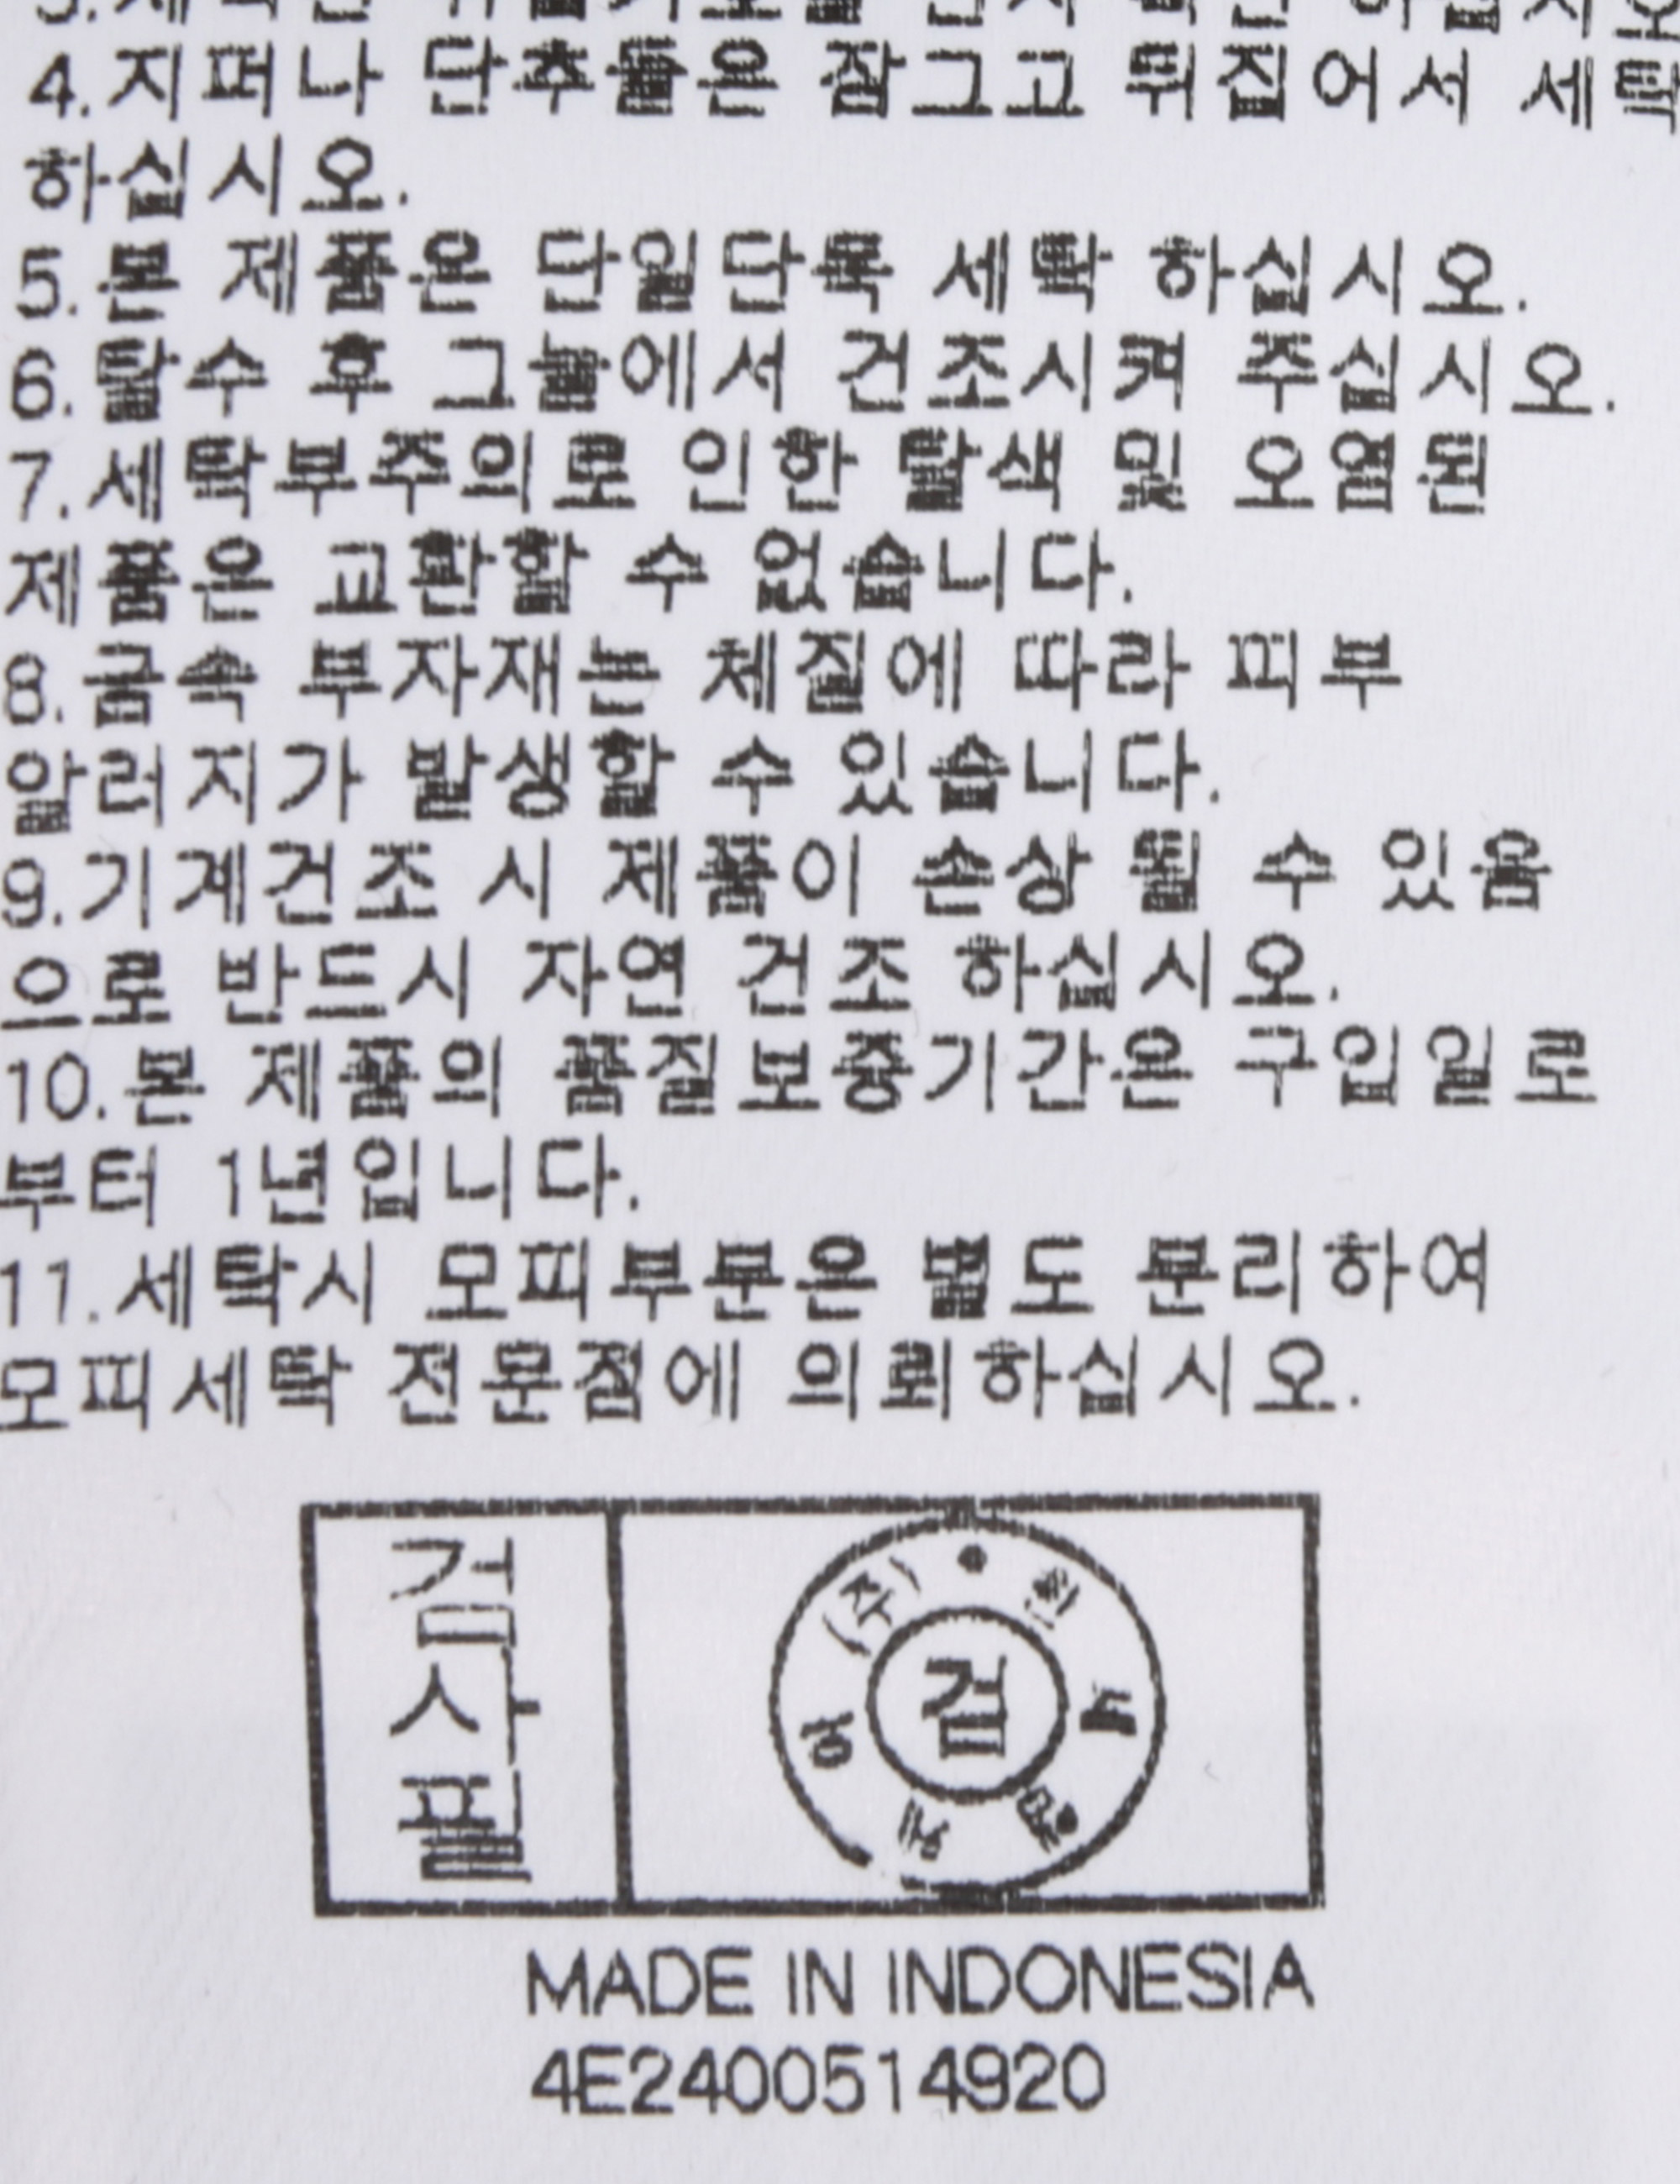 4.지퍼나 단추들은 잠그고 뒤집어서 세탁
하십시오.
5.본 제품은 단일단독 세탁 하십시오.
6.탈수 후 그늘에서 건조시켜 주십시오.
7.세탁부주의로 인한 탈색 및 오염된
제품은 교환할 수 없습니다.
8.금속 부자재는 체질에 따라 피부
알러지가 발생할 수 있습니다.
9.기계건조 시 제품이 손상 될 수 있음
으로 반드시 자연 건조 하십시오.
10.본 제품의 품질보증기간은 구입일로
부터 1년입니다.
11.세탁시 모피부분은 별도 분리하여
모피세탁 전문점에 의뢰하십시오.
검사필
(주)
검
MADE IN INDONESIA
4E2400514920